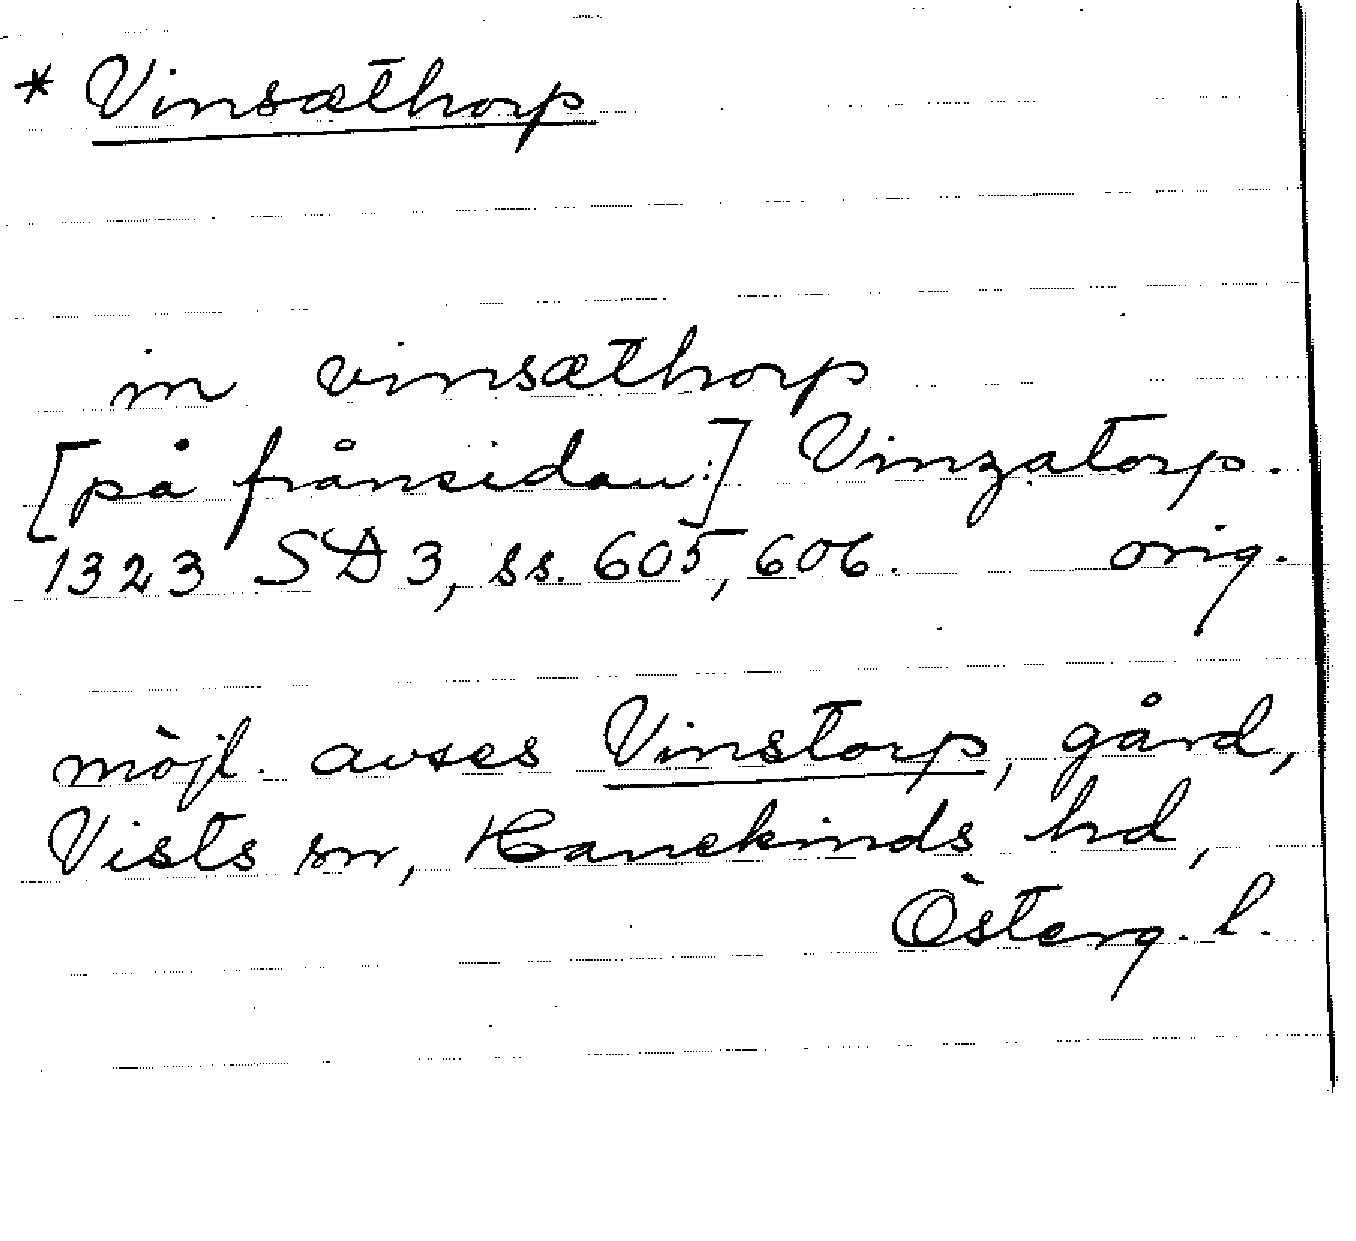 * Vinsæthorp
in vinsæthorp
[på frånsidan:] Vinzatorp.
1323 SD 3, ss. 605, 606. orig.
möjl. avses Vinstorp, gård,
Vists sn, Hanekinds hd,
Österg. l.